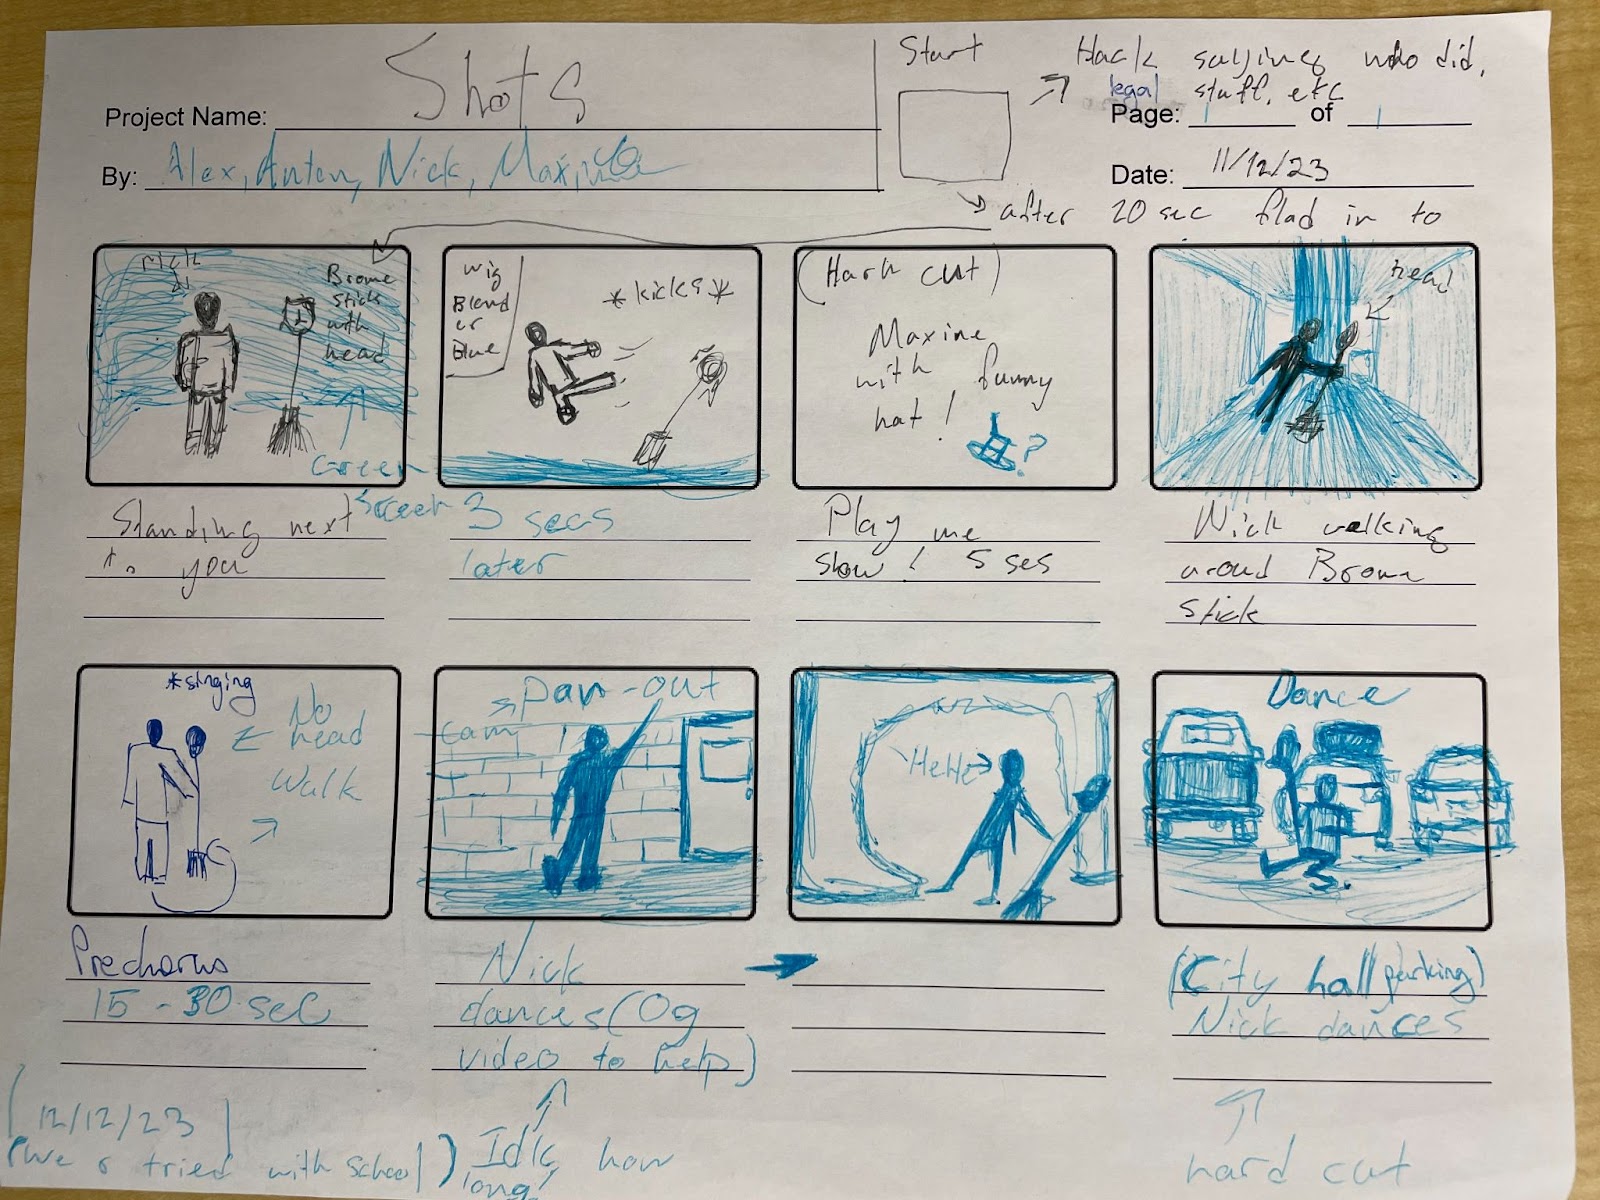 Shots
Project Name:
By: Alex, Anton, Nick, Maxine
Start
Hack sayjing who did,
legal stuff, etc
Page: 1 of 1
Date: 11/12/23
after 20 sec flad in to
Nick
Brome
sticks
with
head
Green
Screen
Standing next
to you
wig
Bland
er
Blue
*kicks*
3 secs
later
(Hark cut)
Maxine
with funny
hat!
?
Play me
slow! 5 ses
head
Nick walking
aroud Brome
stick
*singing
No
head
walk
Prechorus
15-30 sec
pan-out
cam
Nick
dances (Og
video to help)
HeHe
Dance
(City hall parking)
Nick dances
12/12/23
tried with school)
Idk how
long!
hard cut